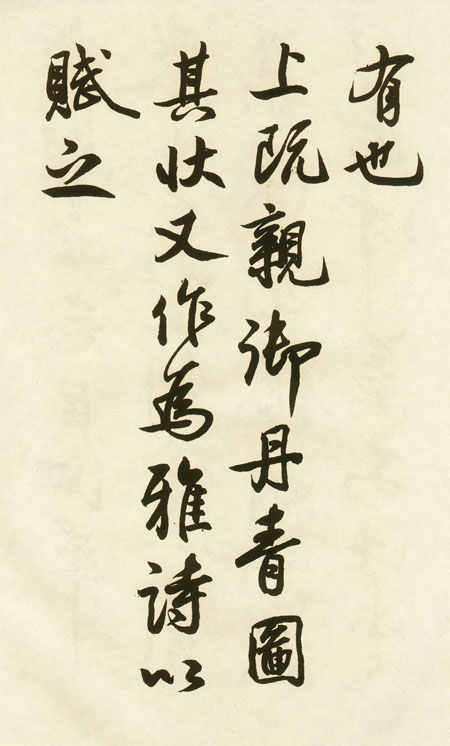 有也
上既親御丹青圖
其狀又作為雅詩以
賦之